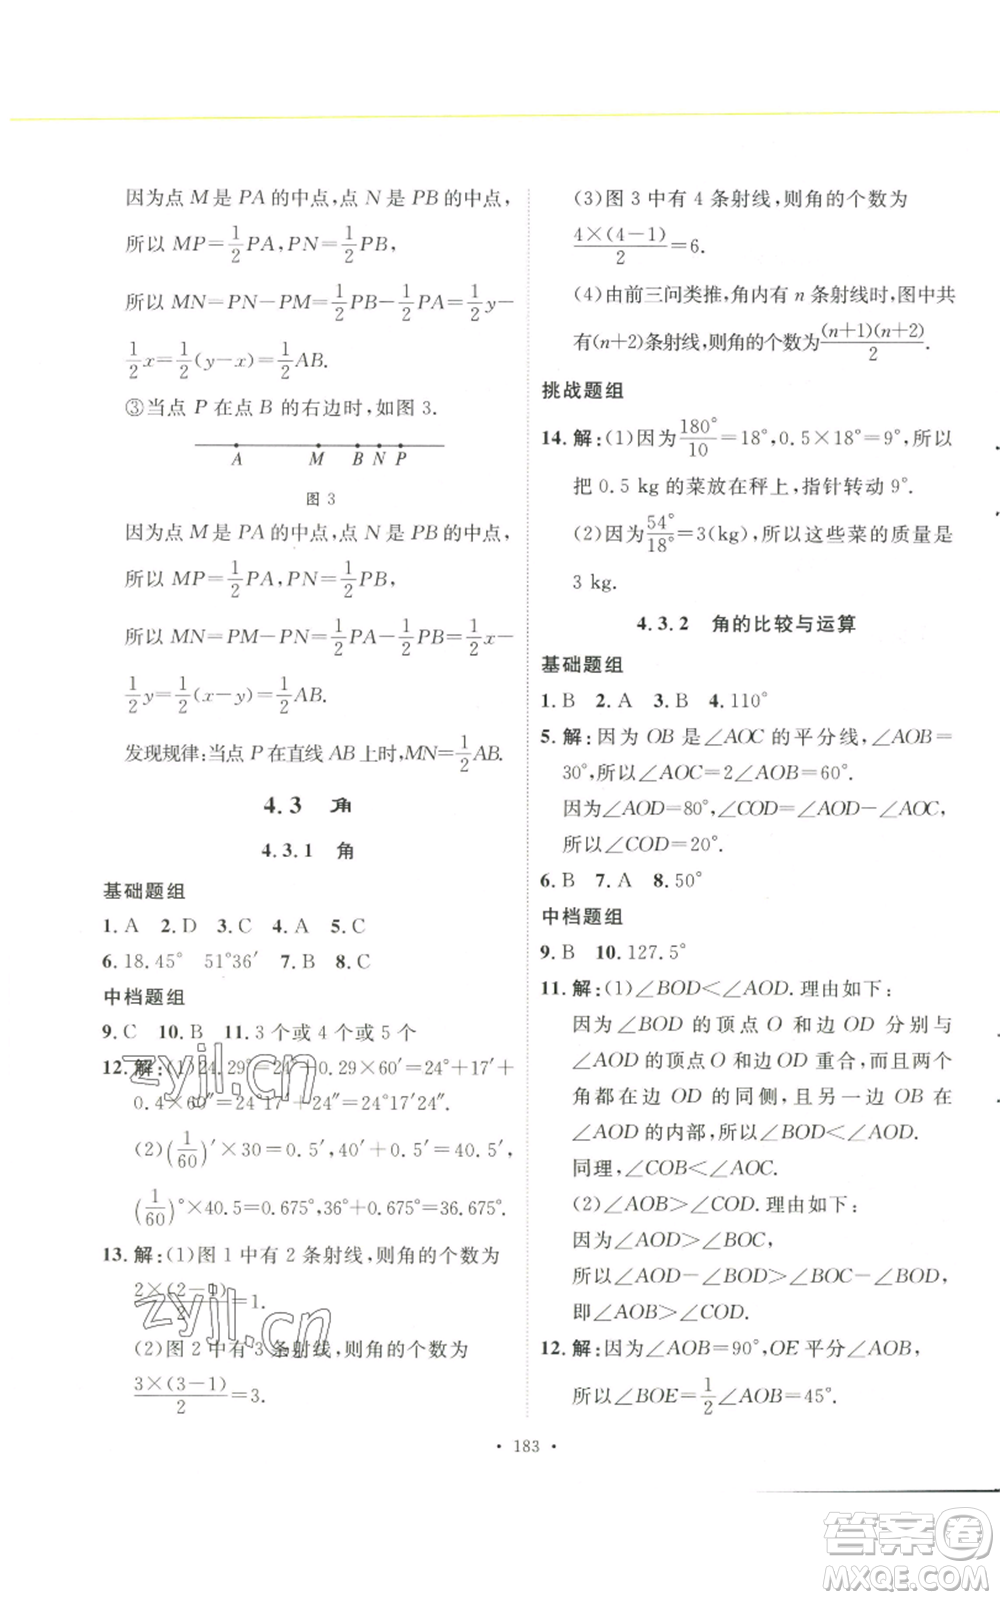 因为点 M 是 PA 的中点,点 N 是 PB 的中点,
所以 MP=1/2PA,PN=1/2PB,
所以 MN=PN-PM=1/2PB-1/2PA=1/2y-
1/2x=1/2(y-x)=1/2AB.
③当点 P 在点 B 的右边时,如图 3.
A M B N P
图 3
因为点 M 是 PA 的中点,点 N 是 PB 的中点,
所以 MP=1/2PA,PN=1/2PB,
所以 MN=PM-PN=1/2PA-1/2PB=1/2x-
1/2y=1/2(x-y)=1/2AB.
发现规律:当点 P 在直线 AB 上时,MN=1/2AB.
4.3 角
4.3.1 角
基础题组
1. A 2. D 3. C 4. A 5. C
6. 18.45° 51°36′ 7. B 8. C
中档题组
9. C 10. B 11. 3 个或 4 个或 5 个
12. 解:(1)24.29°=24°+0.29×60′=24°+17′+
0.4×60″=24°17′+24″=24°17′24″.
(2)(1/60)′×30=0.5′,40′+0.5′=40.5′,
(1/60)°×40.5=0.675°,36°+0.675°=36.675°.
13. 解:(1)图 1 中有 2 条射线,则角的个数为
2×(2-1)/2=1.
(2)图 2 中有 3 条射线,则角的个数为
3×(3-1)/2=3.
(3)图 3 中有 4 条射线,则角的个数为
4×(4-1)/2=6.
(4)由前三问类推,角内有 n 条射线时,图中共
有(n+2)条射线,则角的个数为(n+1)(n+2)/2.
挑战题组
14. 解:(1)因为180°/10=18°,0.5×18°=9°,所以
把 0.5 kg 的菜放在秤上,指针转动 9°.
(2)因为54°/18°=3(kg),所以这些菜的质量是
3 kg.
4.3.2 角的比较与运算
基础题组
1. B 2. A 3. B 4. 110°
5. 解:因为 OB 是∠AOC 的平分线,∠AOB=
30°,所以∠AOC=2∠AOB=60°.
因为∠AOD=80°,∠COD=∠AOD-∠AOC,
所以∠COD=20°.
6. B 7. A 8. 50°
中档题组
9. B 10. 127.5°
11. 解:(1)∠BOD<∠AOD.理由如下:
因为∠BOD 的顶点 O 和边 OD 分别与
∠AOD 的顶点 O 和边 OD 重合,而且两个
角都在边 OD 的同侧,且另一边 OB 在
∠AOD 的内部,所以∠BOD<∠AOD.
同理,∠COB<∠AOC.
(2)∠AOB>∠COD.理由如下:
因为∠AOD>∠BOC,
所以∠AOD-∠BOD>∠BOC-∠BOD,
即∠AOB>∠COD.
12. 解:因为∠AOB=90°,OE 平分∠AOB,
所以∠BOE=1/2∠AOB=45°.
· 183 ·
zyjl.cn
zyjl.cn
答案圈
MXQE.COM